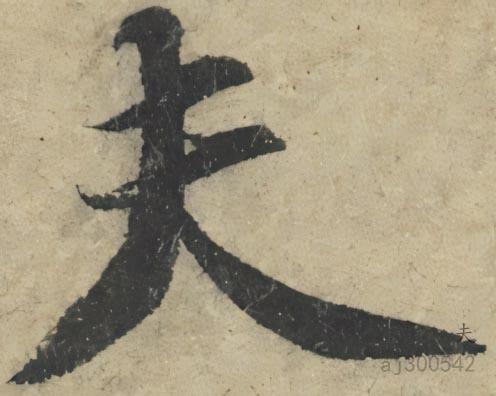 夫
夫
aj300542